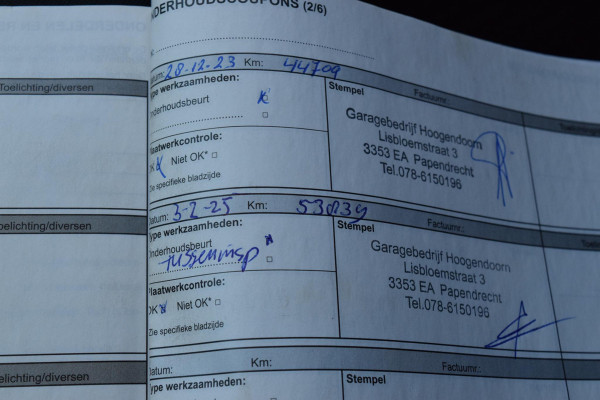 NDERHOUDSCOUPONS (2/6)
Toelichting/diversen
atum: 28-12-23 Km: 44709 Factuurnr.:
ype werkzaamheden: Stempel
nderhoudsbeurt
Garagebedrijf Hoogendoorn
Lisbloemstraat 3
3353 EA Papendrecht
Tel.078-6150196
laatwerkcontrole:
OK Niet OK*
Zie specifieke bladzijde
elichting/diversen
atum: 3-2-25 Km: Factuurnr.:
ype werkzaamheden: Stempel
nderhoudsbeurt
tusseninsp
Garagebedrijf Hoogendoorn
Lisbloemstraat 3
3353 EA Papendrecht
Tel.078-6150196
laatwerkcontrole:
OK Niet OK*
Zie specifieke bladzijde
atum: Km: Factuurnr.:
elichting/diversen
ype werkzaamheden: Stempel